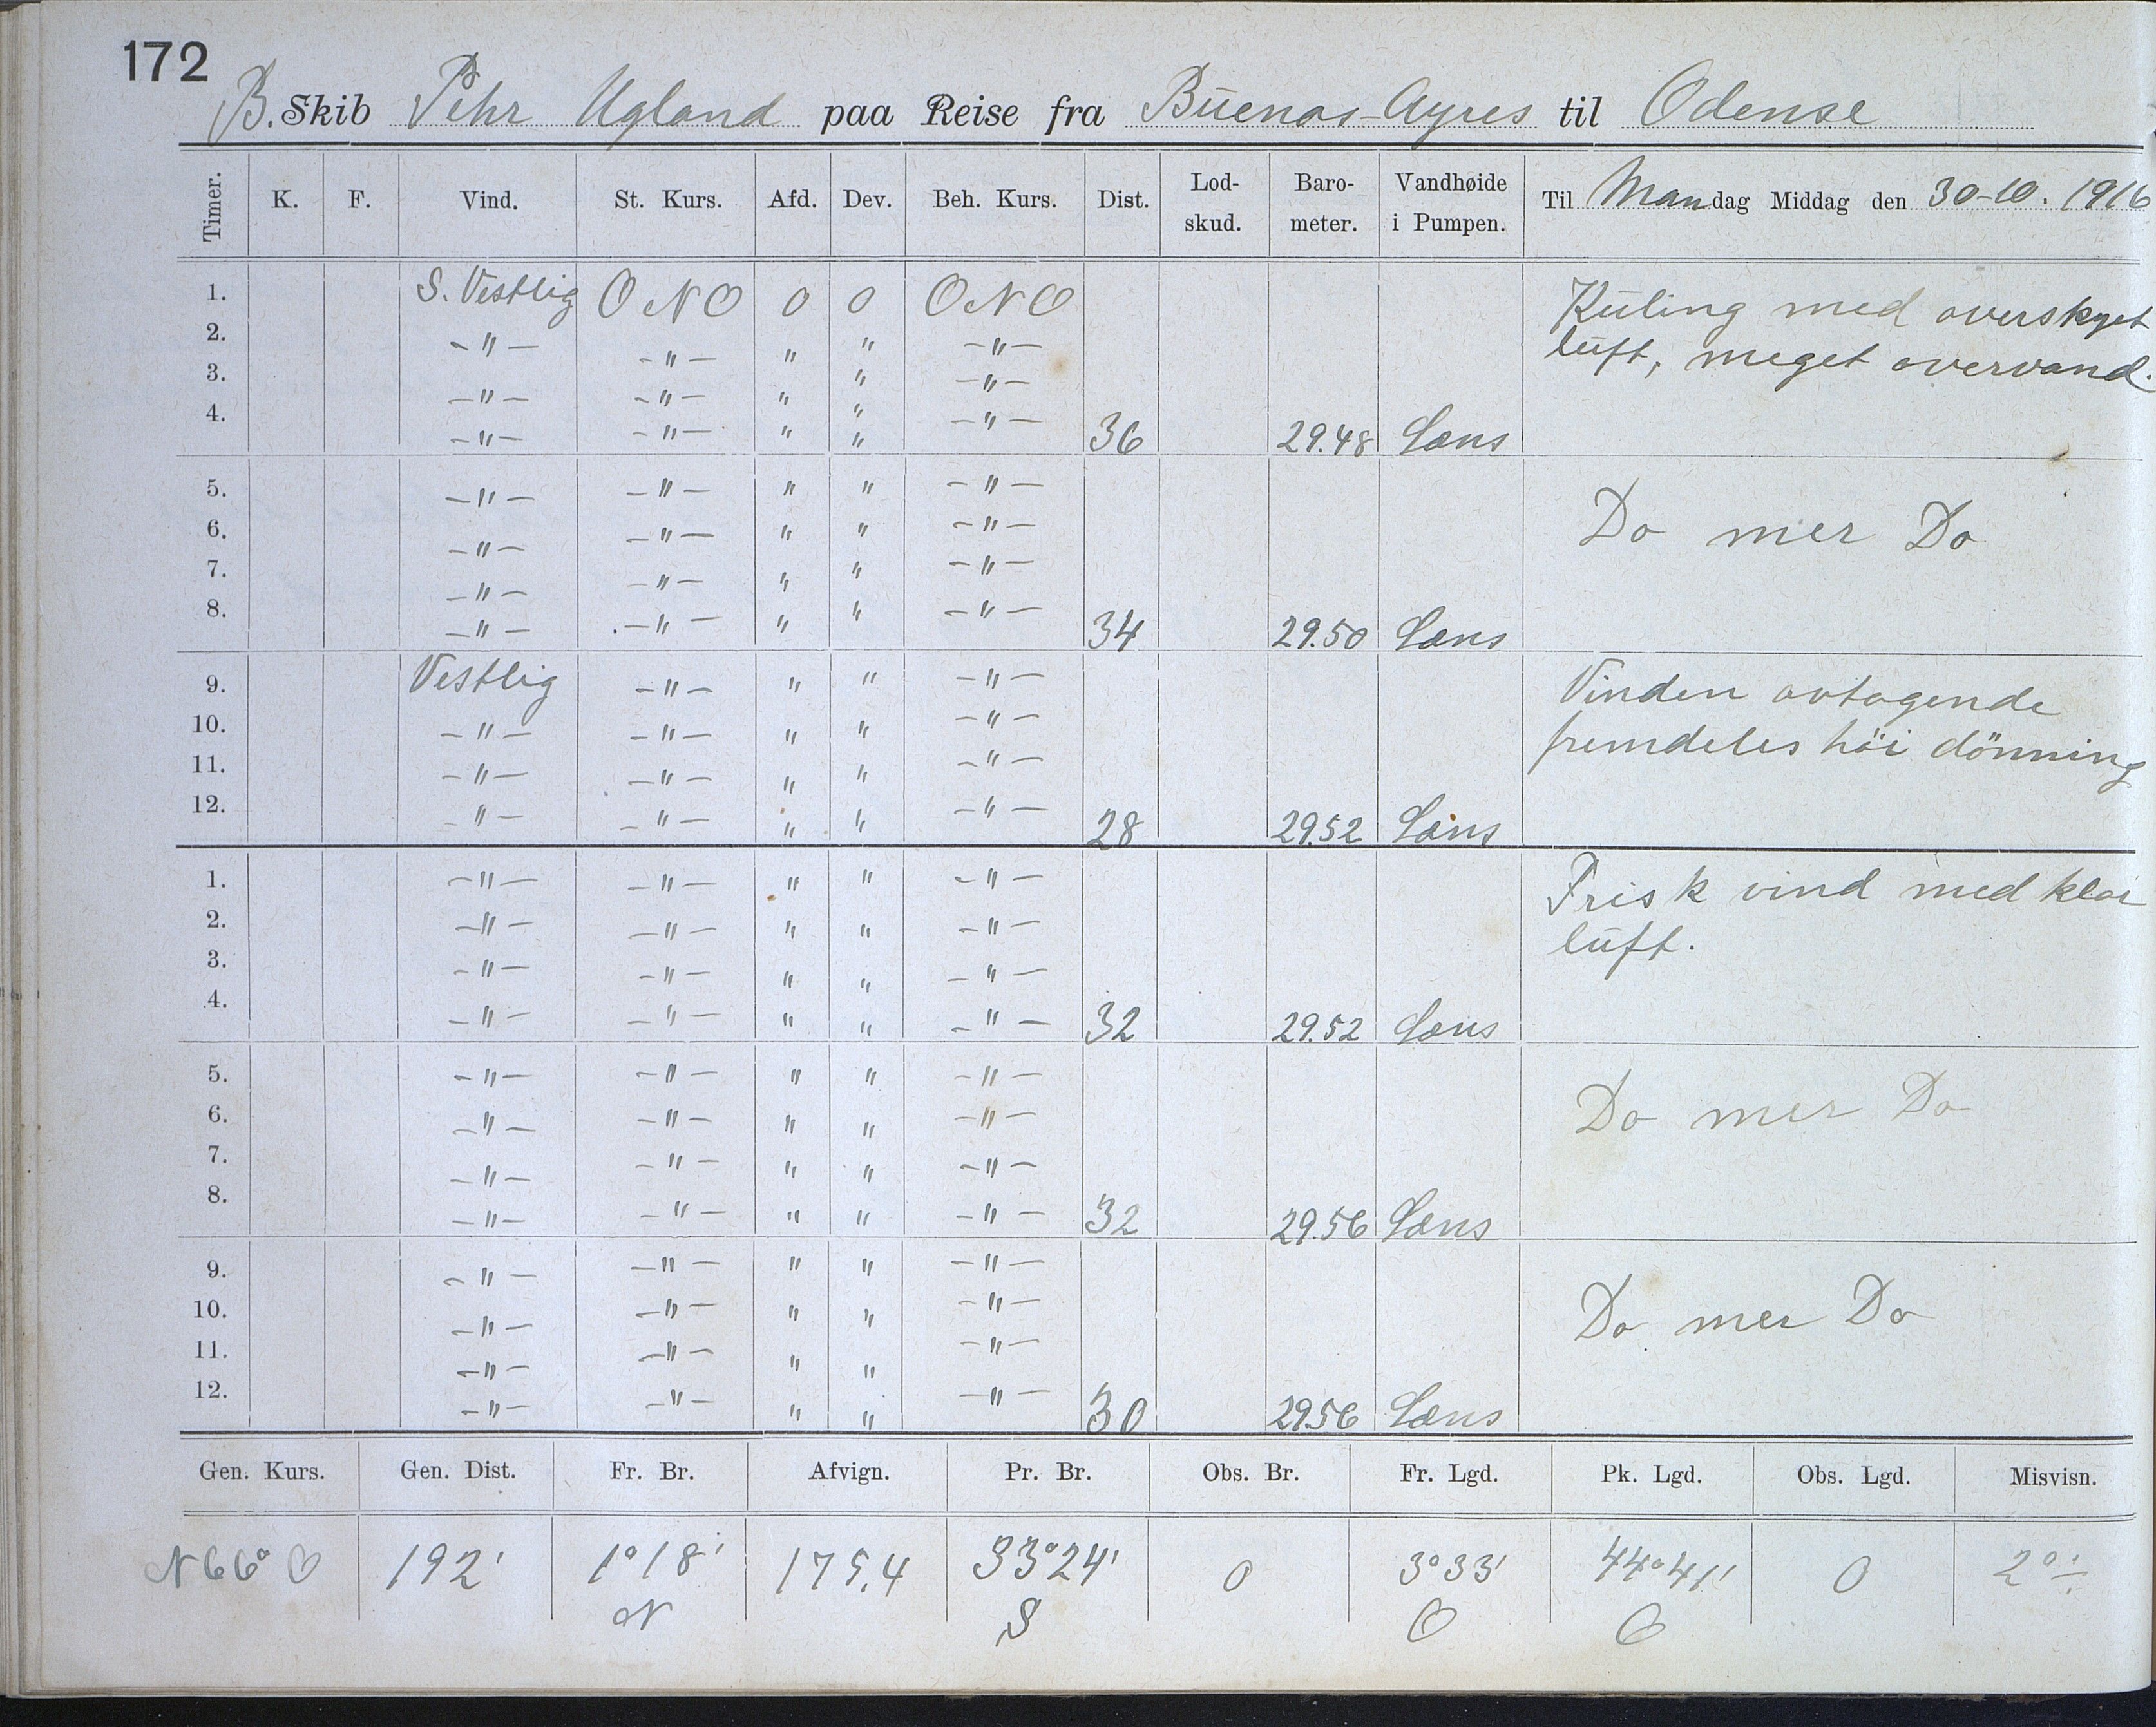 172
B. Skib Pehr Ugland paa Reise fra Buenos-Ayres til Odense
Timer. K. F. Vind. St. Kurs. Afd. Dev. Beh. Kurs. Dist. Lod-skud. Baro-meter. Vandhøide i Pumpen. Til Mandag Middag den 30-10. 1916
1. S. Vestlig ONO 0 0 ONO Kuling med overskyet
2. -"- -"- " " -"- luft, meget overvand.
3. -"- -"- " " -"-
4. -"- -"- " " -"- 36 29.48 Læns
5. -"- -"- " " -"-
6. -"- -"- " " -"- Do mer Do
7. -"- -"- " " -"-
8. -"- -"- " " -"- 34 29.50 Læns
9. Vestlig -"- " " -"- Vinden avtagende
10. -"- -"- " " -"- fremdeles höi dönning
11. -"- -"- " " -"-
12. -"- -"- " " -"- 28 29.52 Læns
1. -"- -"- " " -"- Frisk vind med klar
2. -"- -"- " " -"- luft.
3. -"- -"- " " -"-
4. -"- -"- " " -"- 32 29.52 Læns
5. -"- -"- " " -"-
6. -"- -"- " " -"- Do mer Do
7. -"- -"- " " -"-
8. -"- -"- " " -"- 32 29.56 Læns
9. -"- -"- " " -"-
10. -"- -"- " " -"- Do mer Do
11. -"- -"- " " -"-
12. -"- -"- " " -"- 30 29.56 Læns
Gen. Kurs. Gen. Dist. Fr. Br. Afvign. Pr. Br. Obs. Br. Fr. Lgd. Pk. Lgd. Obs. Lgd. Misvisn.
N66°O 192' 1°18' 175,4 33°24' 0 3°33' 44°41' 0 2°÷
N S O O